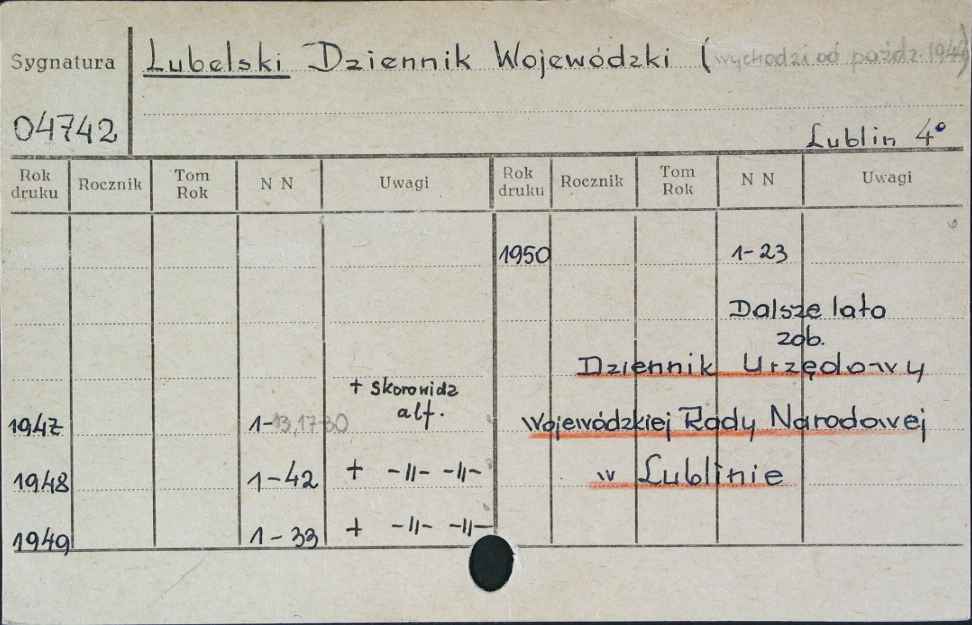 Sygnatura
04742
Lubelski Dziennik Wojewódzki (wychodzi od paźdz. 1944)
Lublin 4°
Rok druku Rocznik Tom Rok N N Uwagi Rok druku Rocznik Tom Rok N N Uwagi
1950 1-23
Dalsze lata
zob.
Dziennik Urzędowy
Wojewódzkiej Rady Narodowej
w Lublinie
+ skorowidz
alf.
1947 1-13,17-30
1948 1-42 + -||- -||-
1949 1-33 + -||- -||-